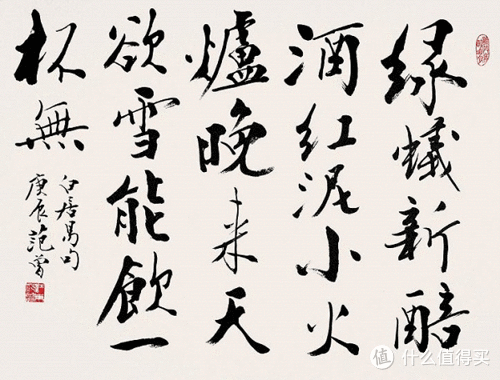 绿蚁新醅
酒红泥小火
爐晚来天
欲雪能飲一
杯無
白居易句
庚辰范曾
值 什么值得买